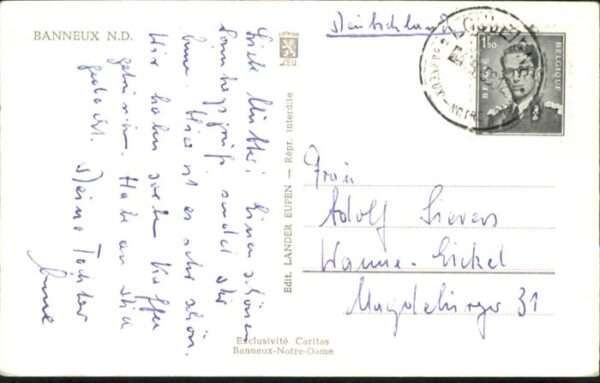 BANNEUX N.D.
Liebe Mutti! Einen schönen
Sonntagsgruß sendet Dir
Anne. Hier ist es sehr schön.
Wir haben soeben Kaffee
getrunken. Habe an Dich
gedacht. Deine Tochter
Anne
Edit. LANDER EUPEN — Répr. interdite
Exclusivité Caritas
Banneux-Notre-Dame
Deutschland
1F50
BELGIE BELGIQUE
Frau
Adolf Sievers
Wanne-Eickel
Magdeburger 31